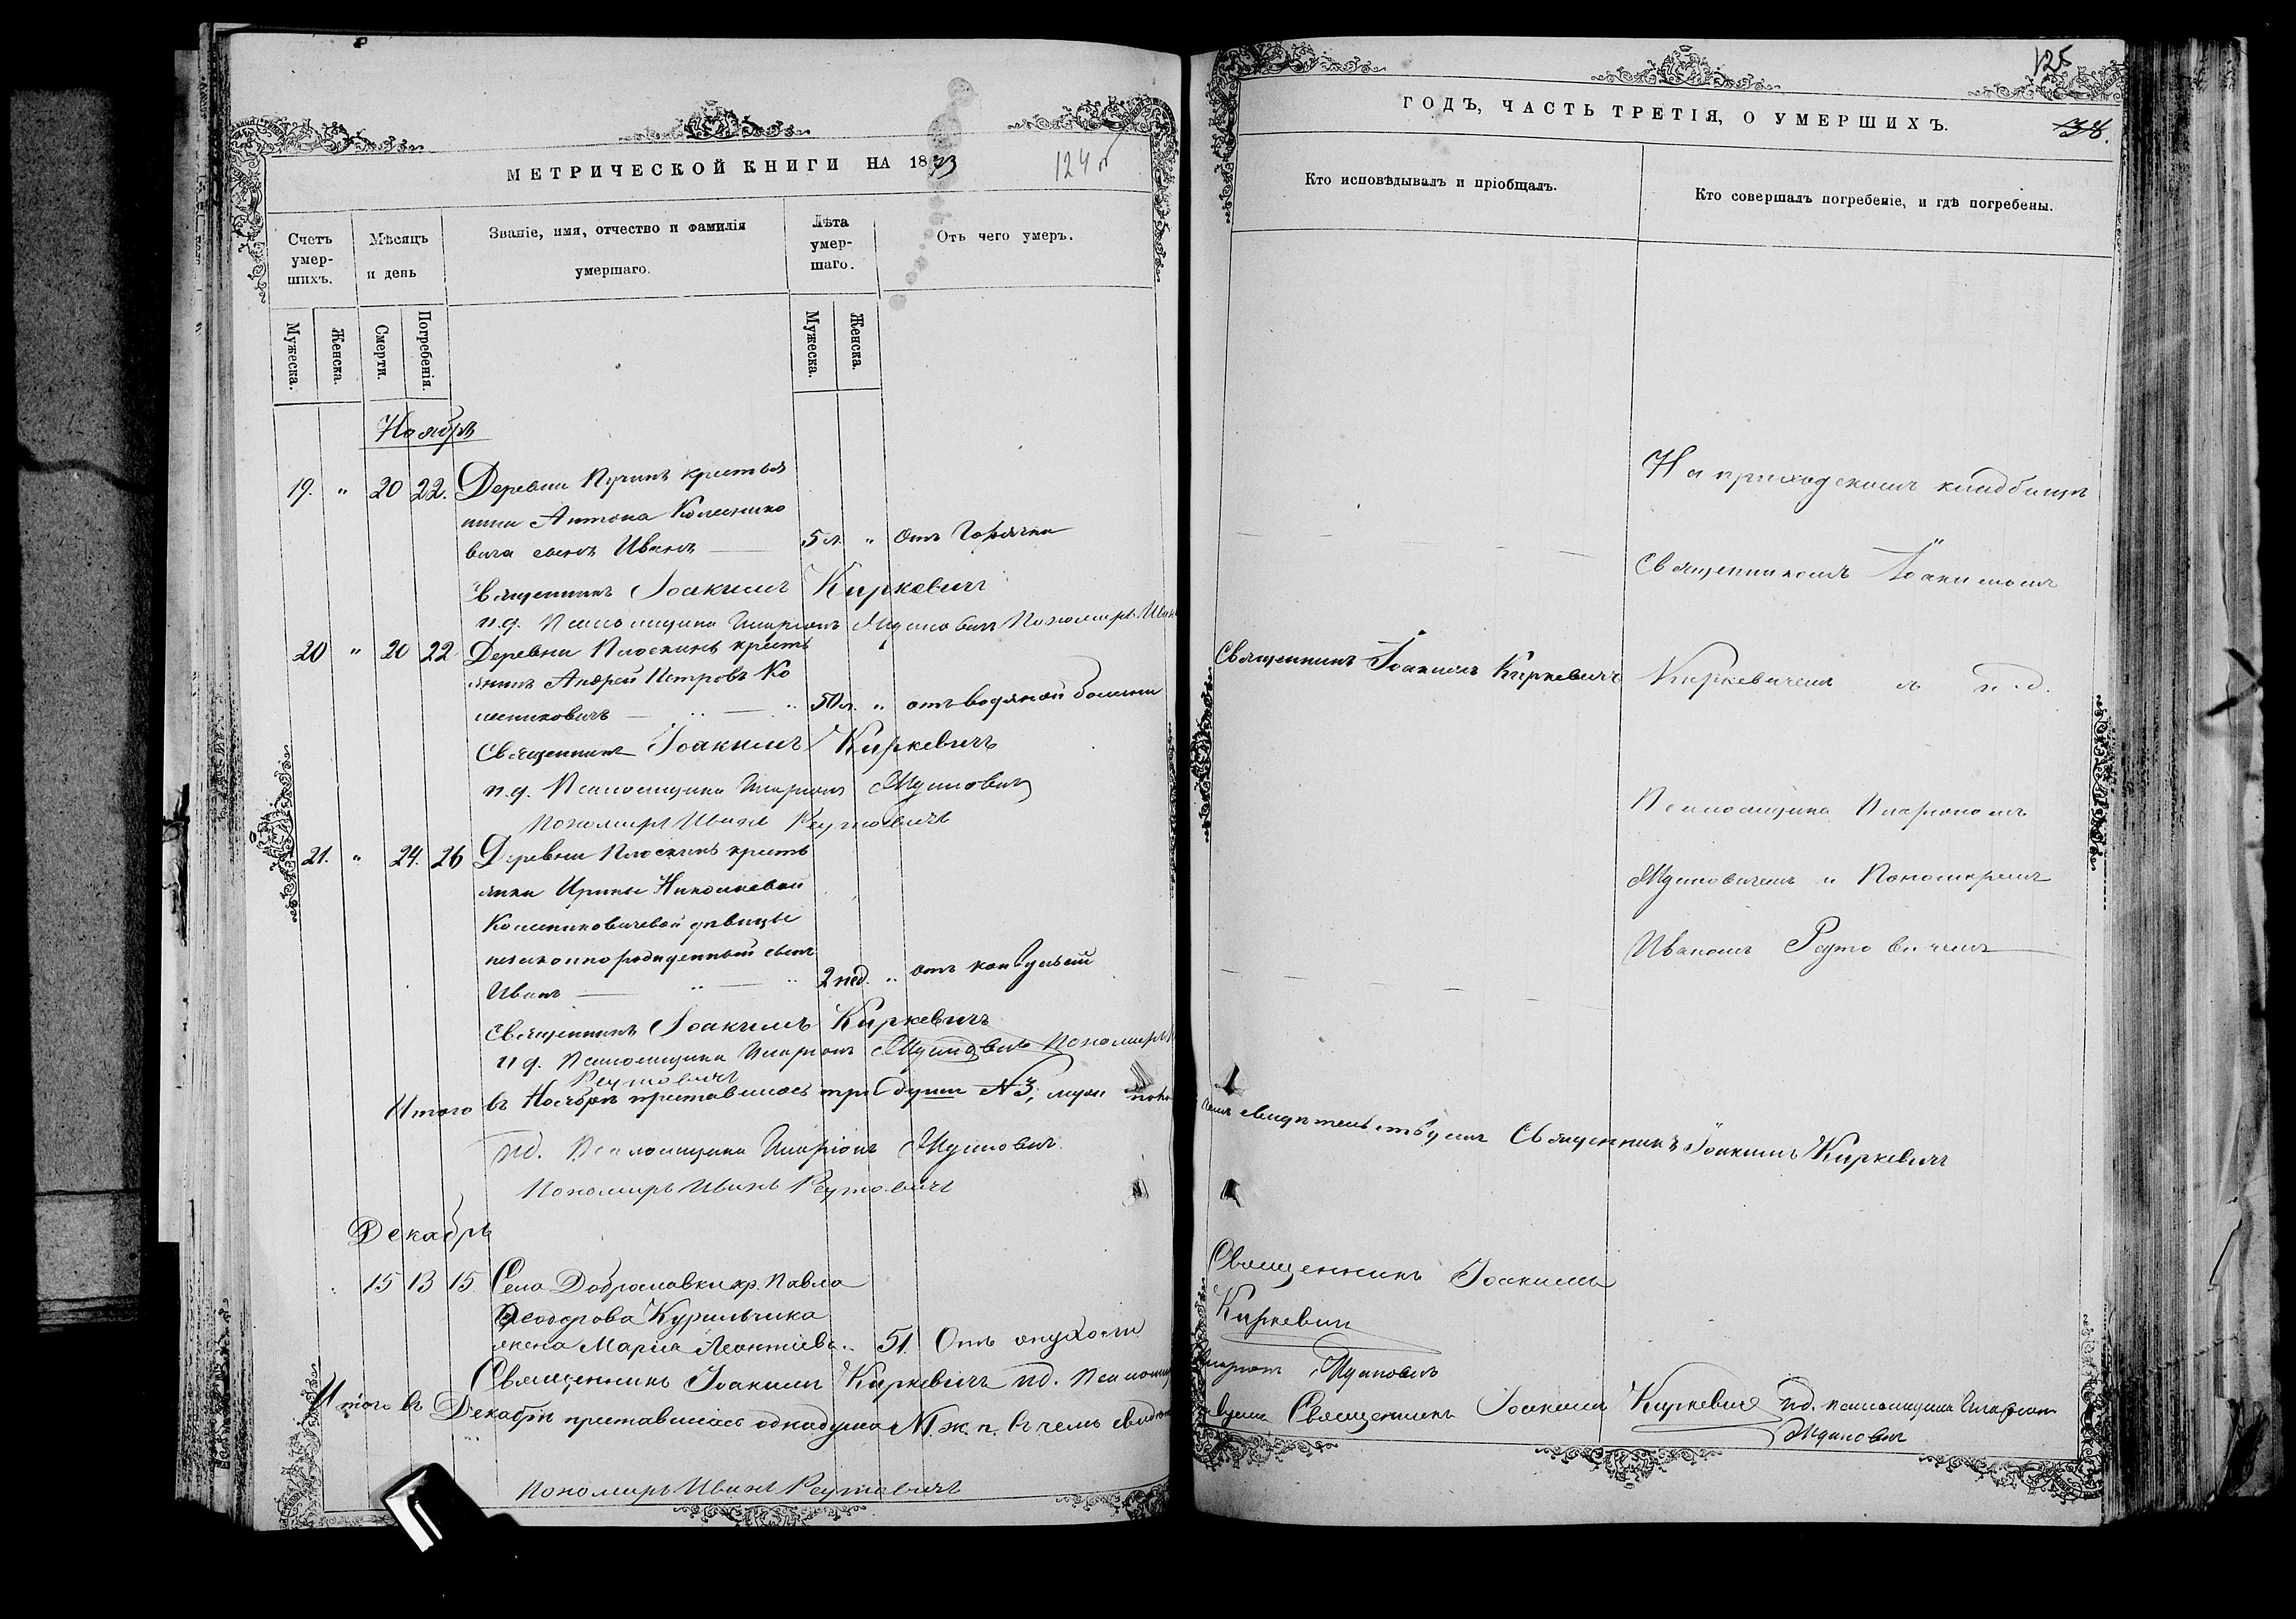 МЕТРИЧЕСКОЙ КНИГИ НА 1873
124 об
Счетъ умер-шихъ.
Мѣсяцъ и день
Званіе, имя, отчество и фамилія умершаго.
Лѣта умер-шаго.
Отъ чего умеръ.
Мужеска.
Женска.
Смерти.
Погребенія.
Мужеска.
Женска.
Ноябрь
19. " 20 22. Деревни Пучинъ крестья
нина Антона Колеснико
вича сынъ Иванъ — 5 л. " Отъ Горячки
Священникъ Іоакимъ Киркевичъ
и.д. Псаломщика Иларіонъ Ждановичъ Пономарь Иванъ
20 " 20 22 Деревни Плоскинь кресть
янинъ Андрей Петровъ Ко
лесниковичъ — " — " 50 л. " отъ водяной болезни
Священникъ Іоакимъ Киркевичъ
и.д. Псаломщика Иларіонъ Ждановичъ
Пономарь Иванъ Реутовичъ
21. " 24. 26 Деревни Плоскинь кресть
янки Ирины Николаевой
Колесниковичевой дѣвицы
незаконнорожденный сынъ
Иванъ — " — " 2 нед. " отъ конвульсій
Священникъ Іоакимъ Киркевичъ
и д. Псаломщика Иларіонъ Ждановичъ Пономарь
Реутовичъ
Итого въ Ноябрѣ преставилось три души №3, муж
и.д. Псаломщика Иларіонъ Ждановичъ.
Пономарь Иванъ Реутовичъ
Декабрь
15 13 15. Села Доброславки кр. Павла
Ѳеодорова Курильчика
жена Марія Леонтіева.. 51. Отъ опухоли
Священникъ Іоакимъ Киркевичъ и.д. Псаломщ
Итого въ Декабрѣ преставилась одна душа №1 ж. п. въ чемъ свидѣт
Пономарь Иванъ Реутовичъ
125
ГОДЪ, ЧАСТЬ ТРЕТІЯ, О УМЕРШИХЪ.
138.
Кто исповѣдывалъ и пріобщалъ.
Кто совершалъ погребеніе, и гдѣ погребены.
На приходскомъ кладбищѣ
Священникомъ Іоакимомъ
Священникъ Іоакимъ Киркевичъ
Киркевичемъ съ и.д.
Псаломщика Иларіономъ
Ждановичемъ и Пономаремъ
Иваномъ Реутовичемъ
чемъ свидѣтельствуемъ Священникъ Іоакимъ Киркевичъ
Священникъ Іоакимъ
Киркевичъ
Иларіонъ Ждановичъ
вуемъ Священникъ Іоакимъ Киркевичъ и.д. псаломщика Иларіонъ
Ждановичъ